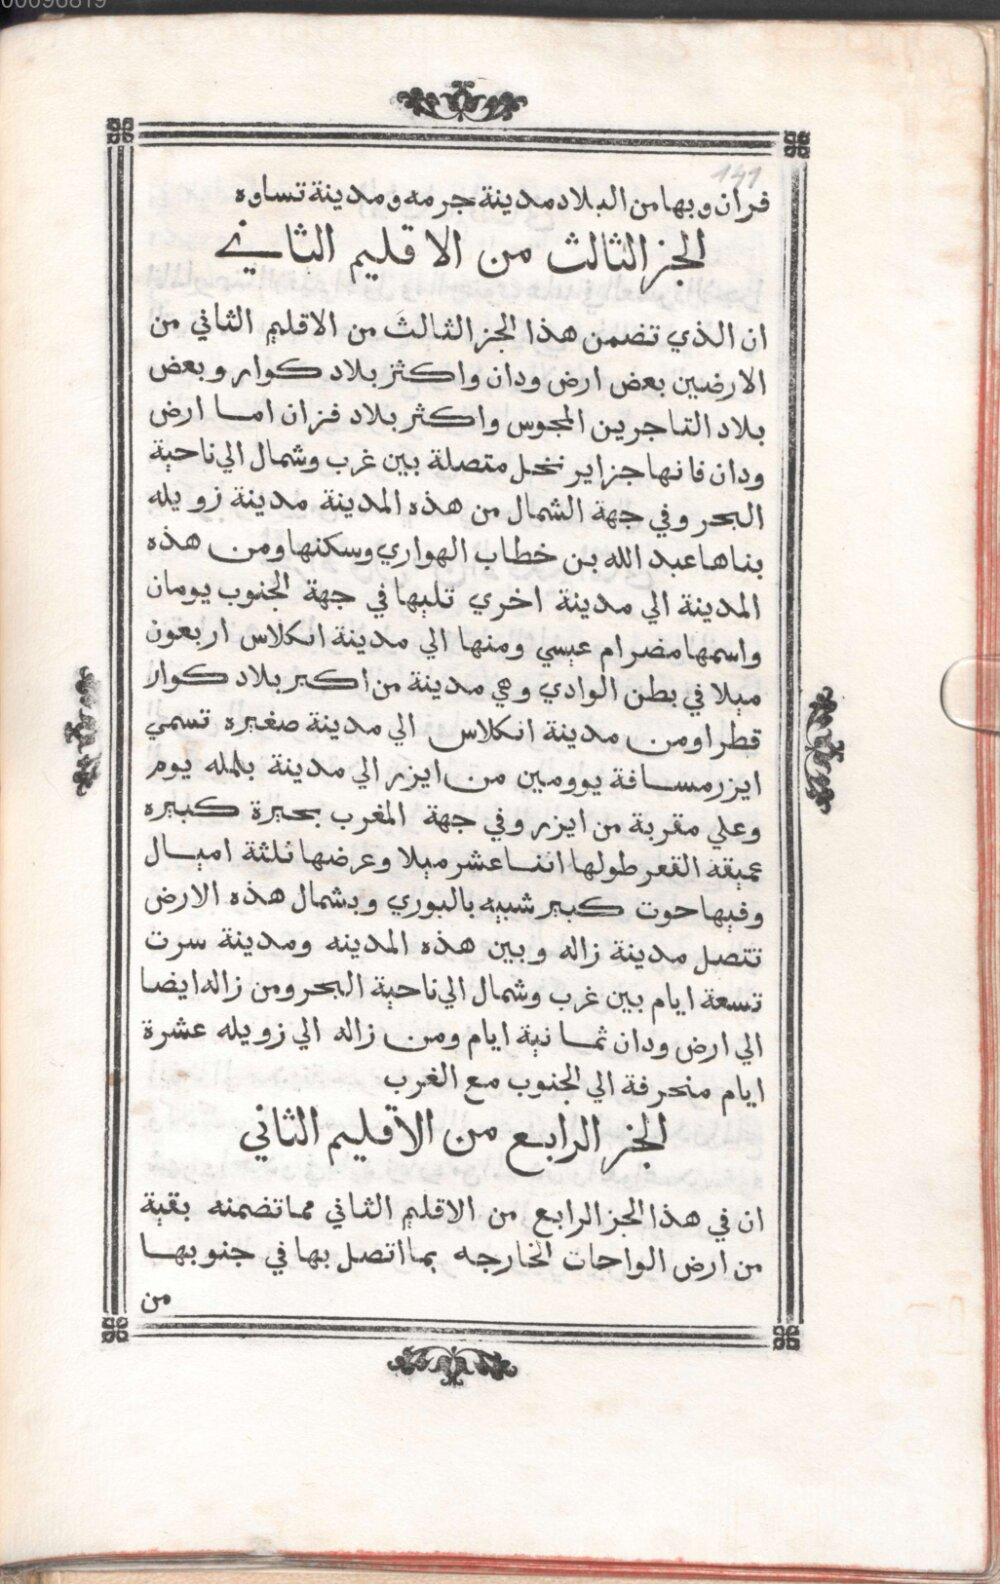 00096819
141
فزان وبها من البلاد مدينة جرمه ومدينة تساوه
الجز الثالث من الاقليم الثاني
ان الذي تضمن هذا الجز الثالث من الاقليم الثاني من
الارضين بعض ارض ودان واكثر بلاد كوار وبعض
بلاد التاجرين المجوس واكثر بلاد فزان اما ارض
ودان فانها جزاير نخل متصلة بين غرب وشمال الي ناحية
البحر وفي جهة الشمال من هذه المدينة مدينة زويله
بناها عبد الله بن خطاب الهواري وسكنها ومن هذه
المدينة الي مدينة اخري تليها في جهة الجنوب يومان
واسمها مضرام عيسي ومنها الي مدينة انكلاس اربعون
ميلا في بطن الوادي وهي مدينة من اكبر بلاد كوار
قطرا ومن مدينة انكلاس الي مدينة صغيره تسمي
ايزر مسافة يوومين من ايزر الي مدينة بلمله يوم
وعلي مقربة من ايزر وفي جهة المغرب بحيرة كبيره
عميقه القعر طولها اثنا عشر ميلا وعرضها ثلثة اميال
وفيها حوت كبير شبيه بالبوري وبشمال هذه الارض
تتصل مدينة زاله وبين هذه المدينه ومدينة سرت
تسعة ايام بين غرب وشمال الي ناحية البحر ومن زاله ايضا
الي ارض ودان ثمانية ايام ومن زاله الي زويله عشرة
ايام منحرفة الي الجنوب مع الغرب
الجز الرابع من الاقليم الثاني
ان في هذا الجز الرابع من الاقليم الثاني مما تضمنه بقية
من ارض الواحات الخارجه بما اتصل بها في جنوبها
من